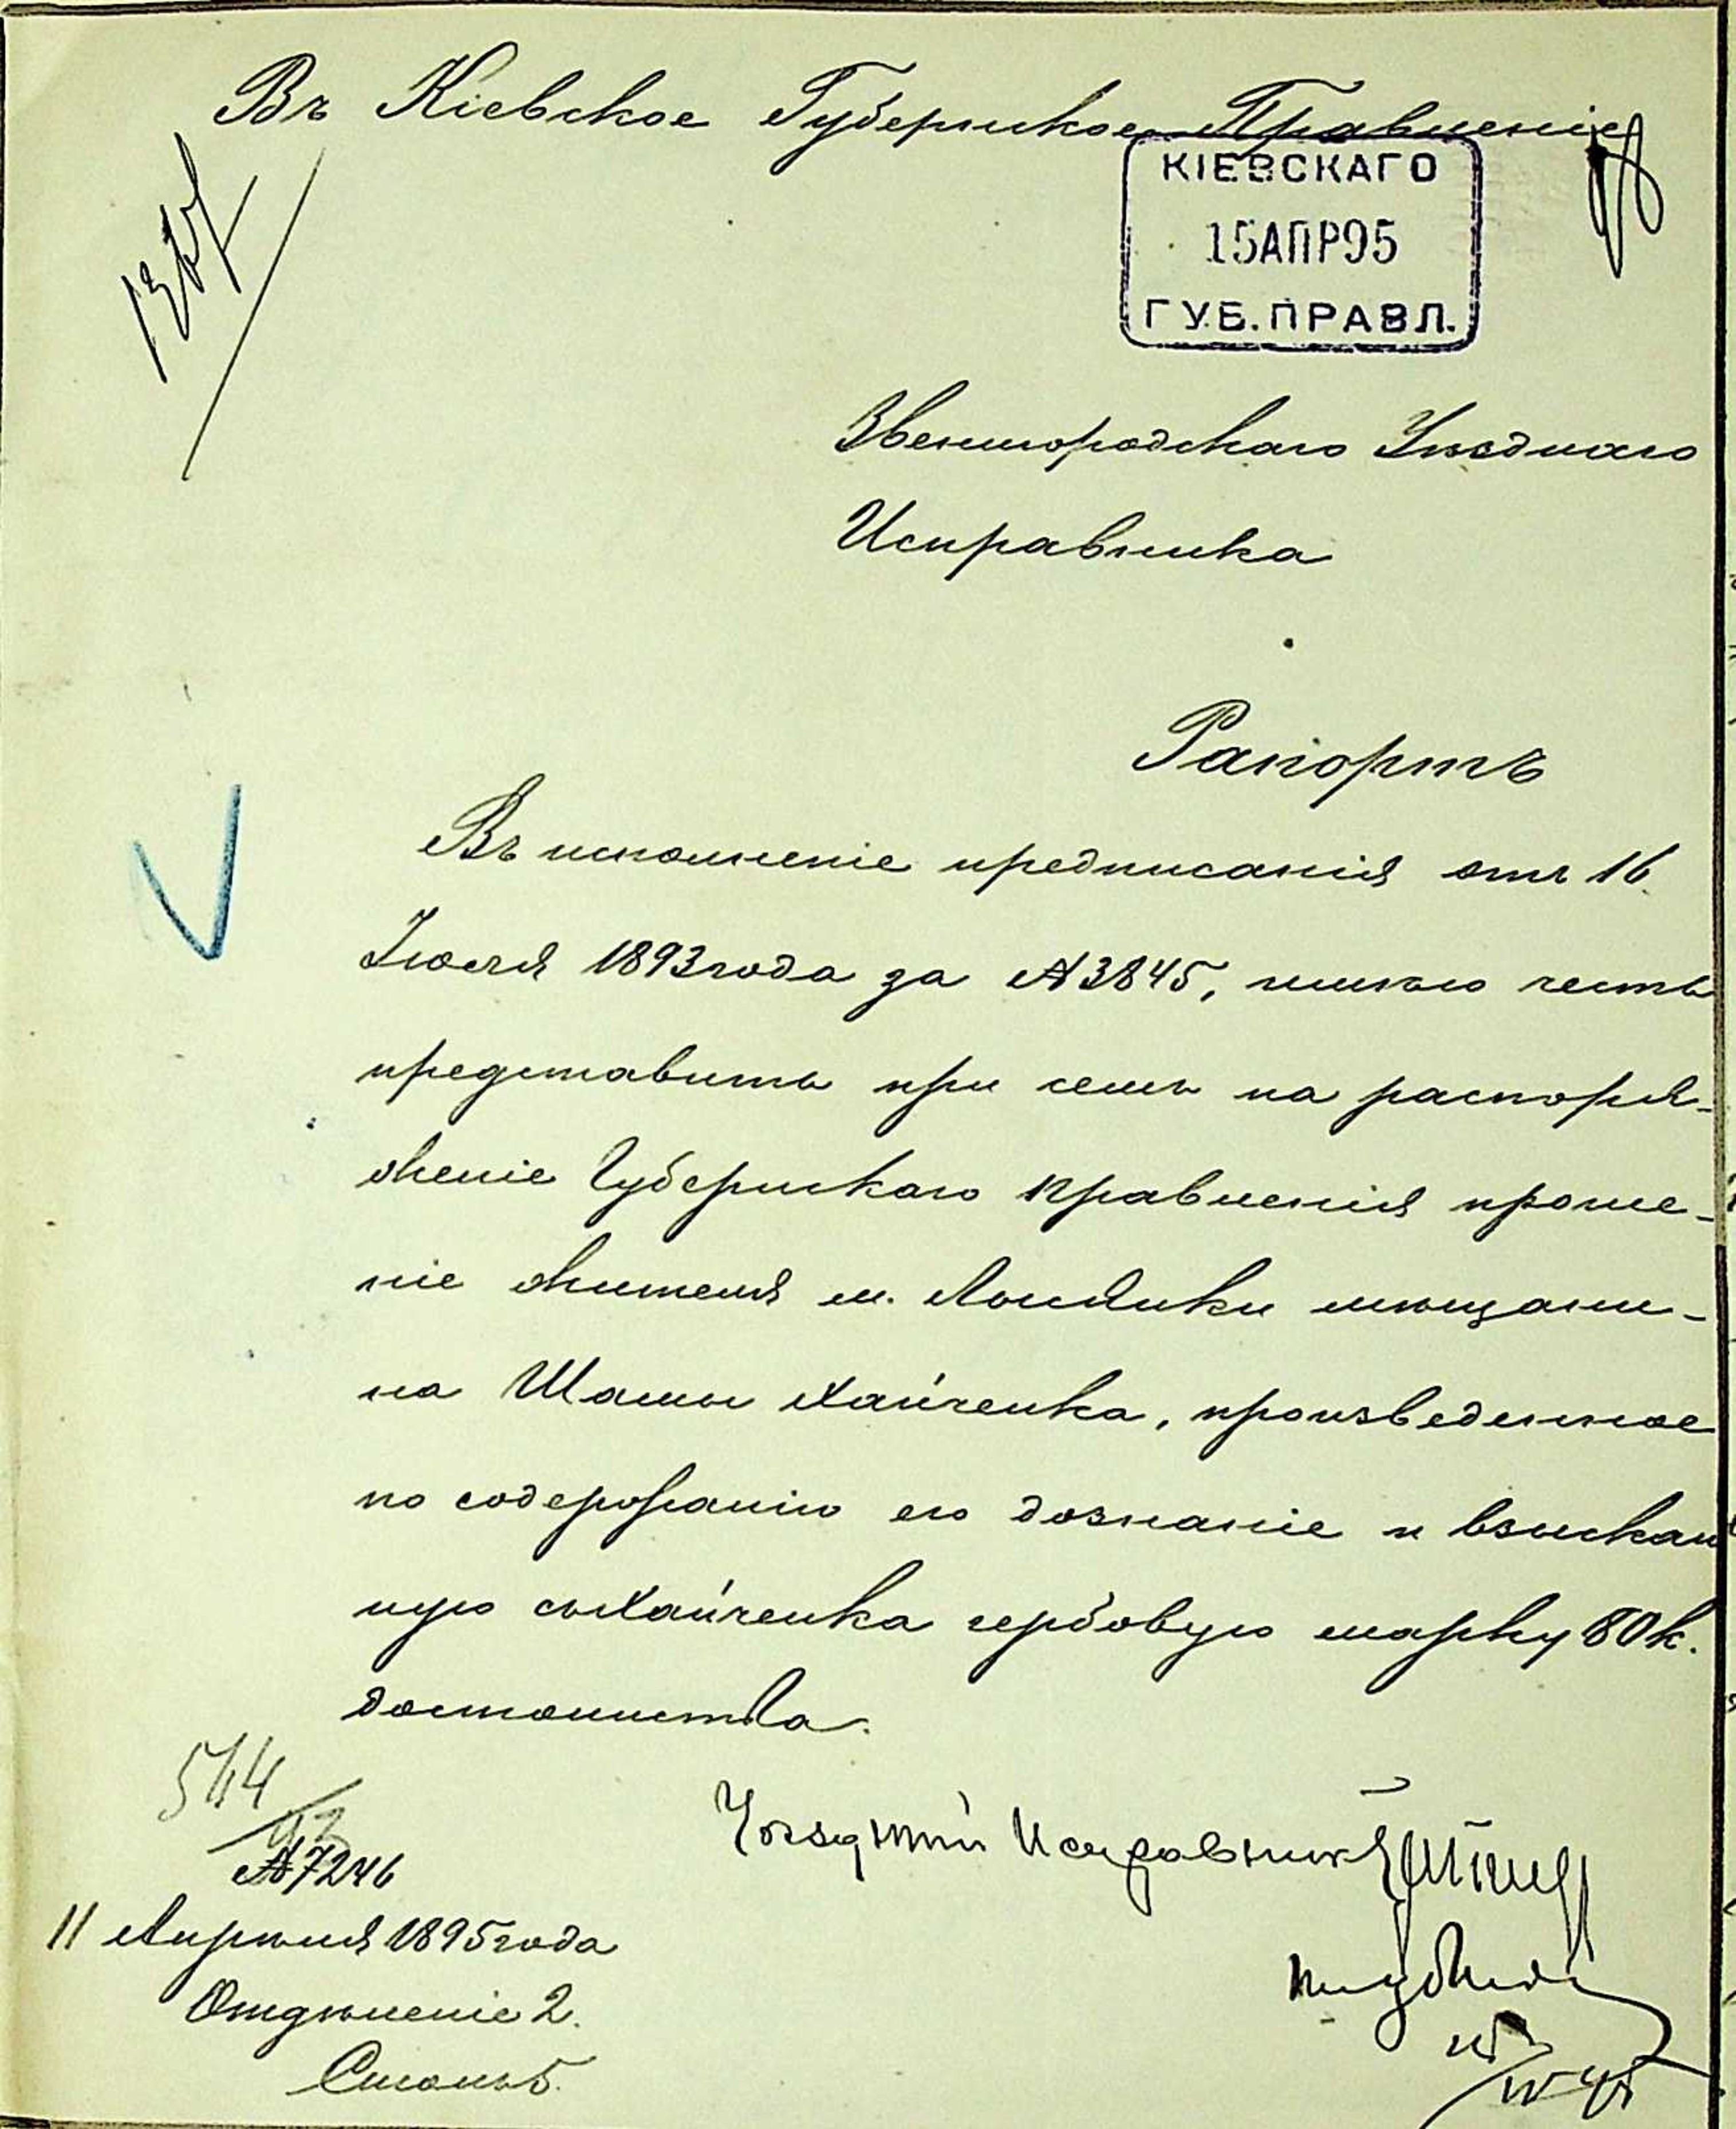 Въ Кіевское Губернское Правленіе
КІЕВСКАГО
15 АПР 95
ГУБ. ПРАВЛ.
Звенигородскаго Уѣзднаго
Исправника
Рапортъ
Въ исполненіе предписанія отъ 16
Іюля 1893 года за № 3845, имѣю честь
представить при семъ на распоря-
женіе Губернскаго Правленія проше-
ніе жителя м. Лысянки мѣщани-
на Шамы Хайченка, произведенное
по содержанію его дознаніе и взыскан
ную съ Хайченка гербовую марку 80 к.
достоинства.
544
93
№ 7246
Уѣздный Исправникъ
11 Апрѣля 1895 года
Отдѣленіе 2.
Столъ 5.